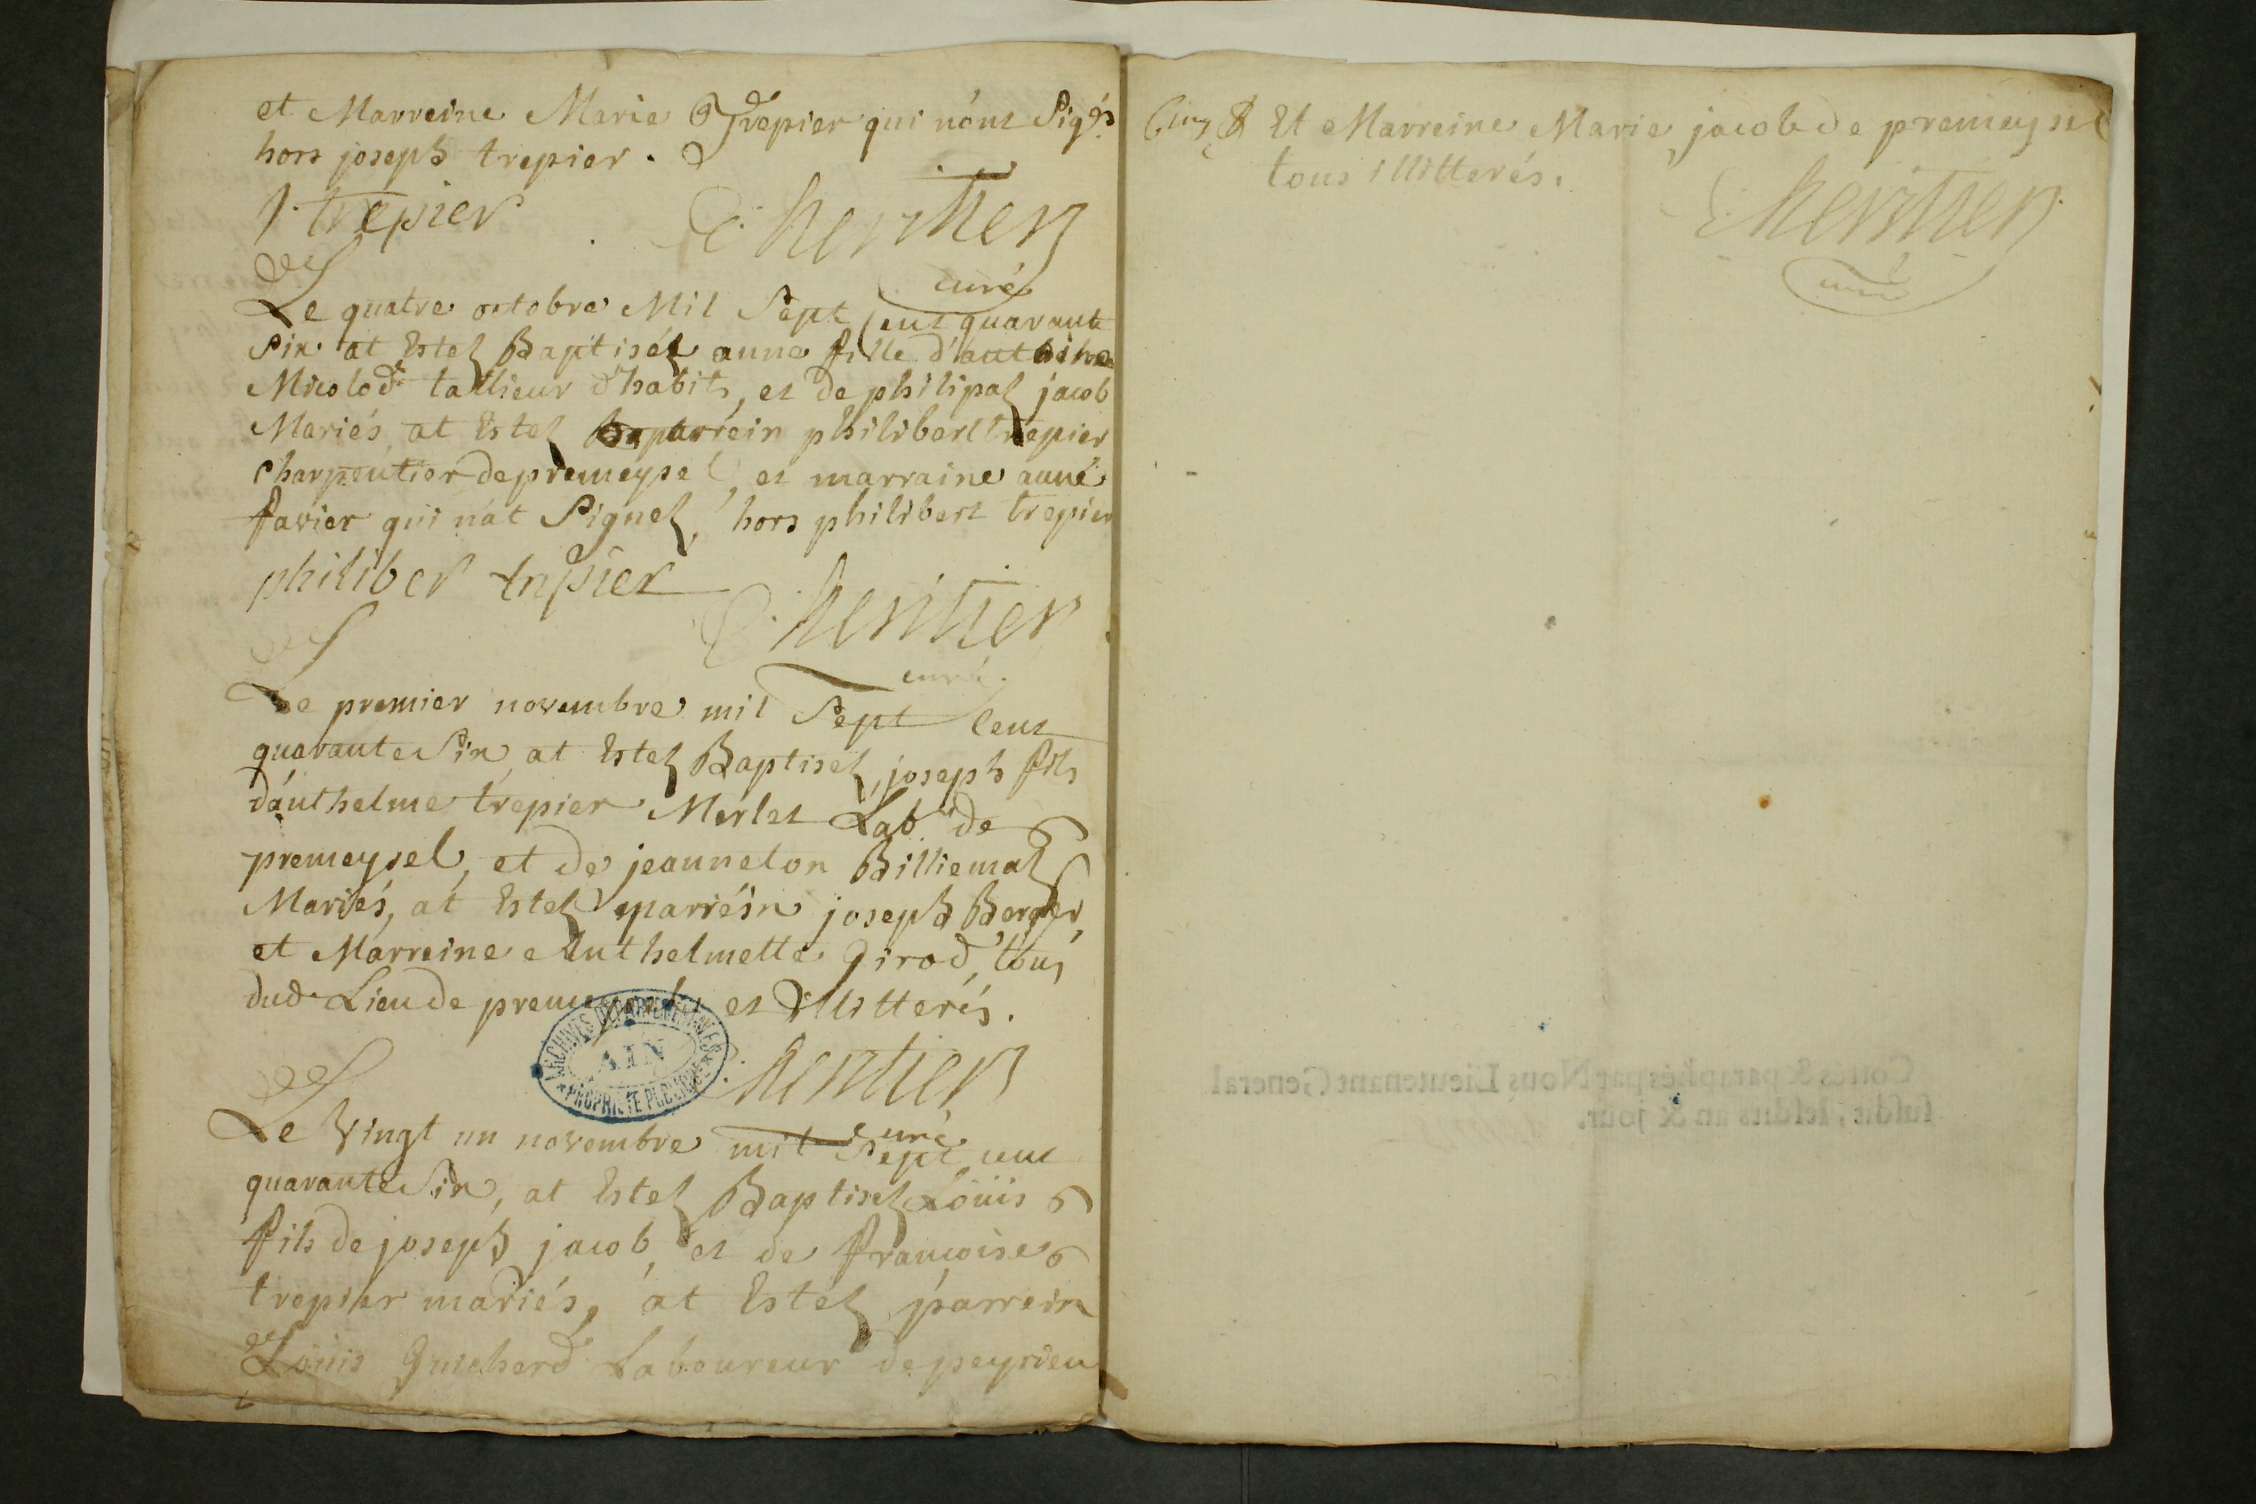 et Marreine Marie Trepier qui nónt Signés
hors joseph trepier.
J. trepier
C. heritier
curé
Le quatre octobre Mil Sept Cent quarante
Six at Estez Baptiséz anne fille d'anthelme
Micolod tallieur d'habits, et de philipaz jacob
Mariés at Estez parréin philibert trepier
Charpentier de premeysel, et marraine anne
favier qui nat Signez, hors philibert trepier
philiber trepier
C. heritier
curé.
Le premier novembre mil Sept Cent
quarante Six, at Estez Baptisez joseph fils
dánthelme trepier Merlet Lab.r de
premeysel, et de jeanneton Billiemaz
Mariés, at Estez parréin joseph Berger,
et Marreine Anthelmette Girod, tous
dud. Lieu de premeysel, et illitterés.
C. heritier
curé
ARCHIVES DEPARTEMENTALES
AIN
PROPRIETE PUBLIQUE
Le Vingt un novembre mil Sept cent
quarante Six, at Estez Baptisez Loüis
fils de joseph jacob, et de francoise
trepier mariés, at Estez parrein
Loüis Guicherd Laboureur de peysieu
Cinq. Et Marreine Marie jacob de premeysel
tous illitterés.
C. heritier
curé
Cottés & paraphés par Nous Lieutenant General
susdit, lesdits an & jour.